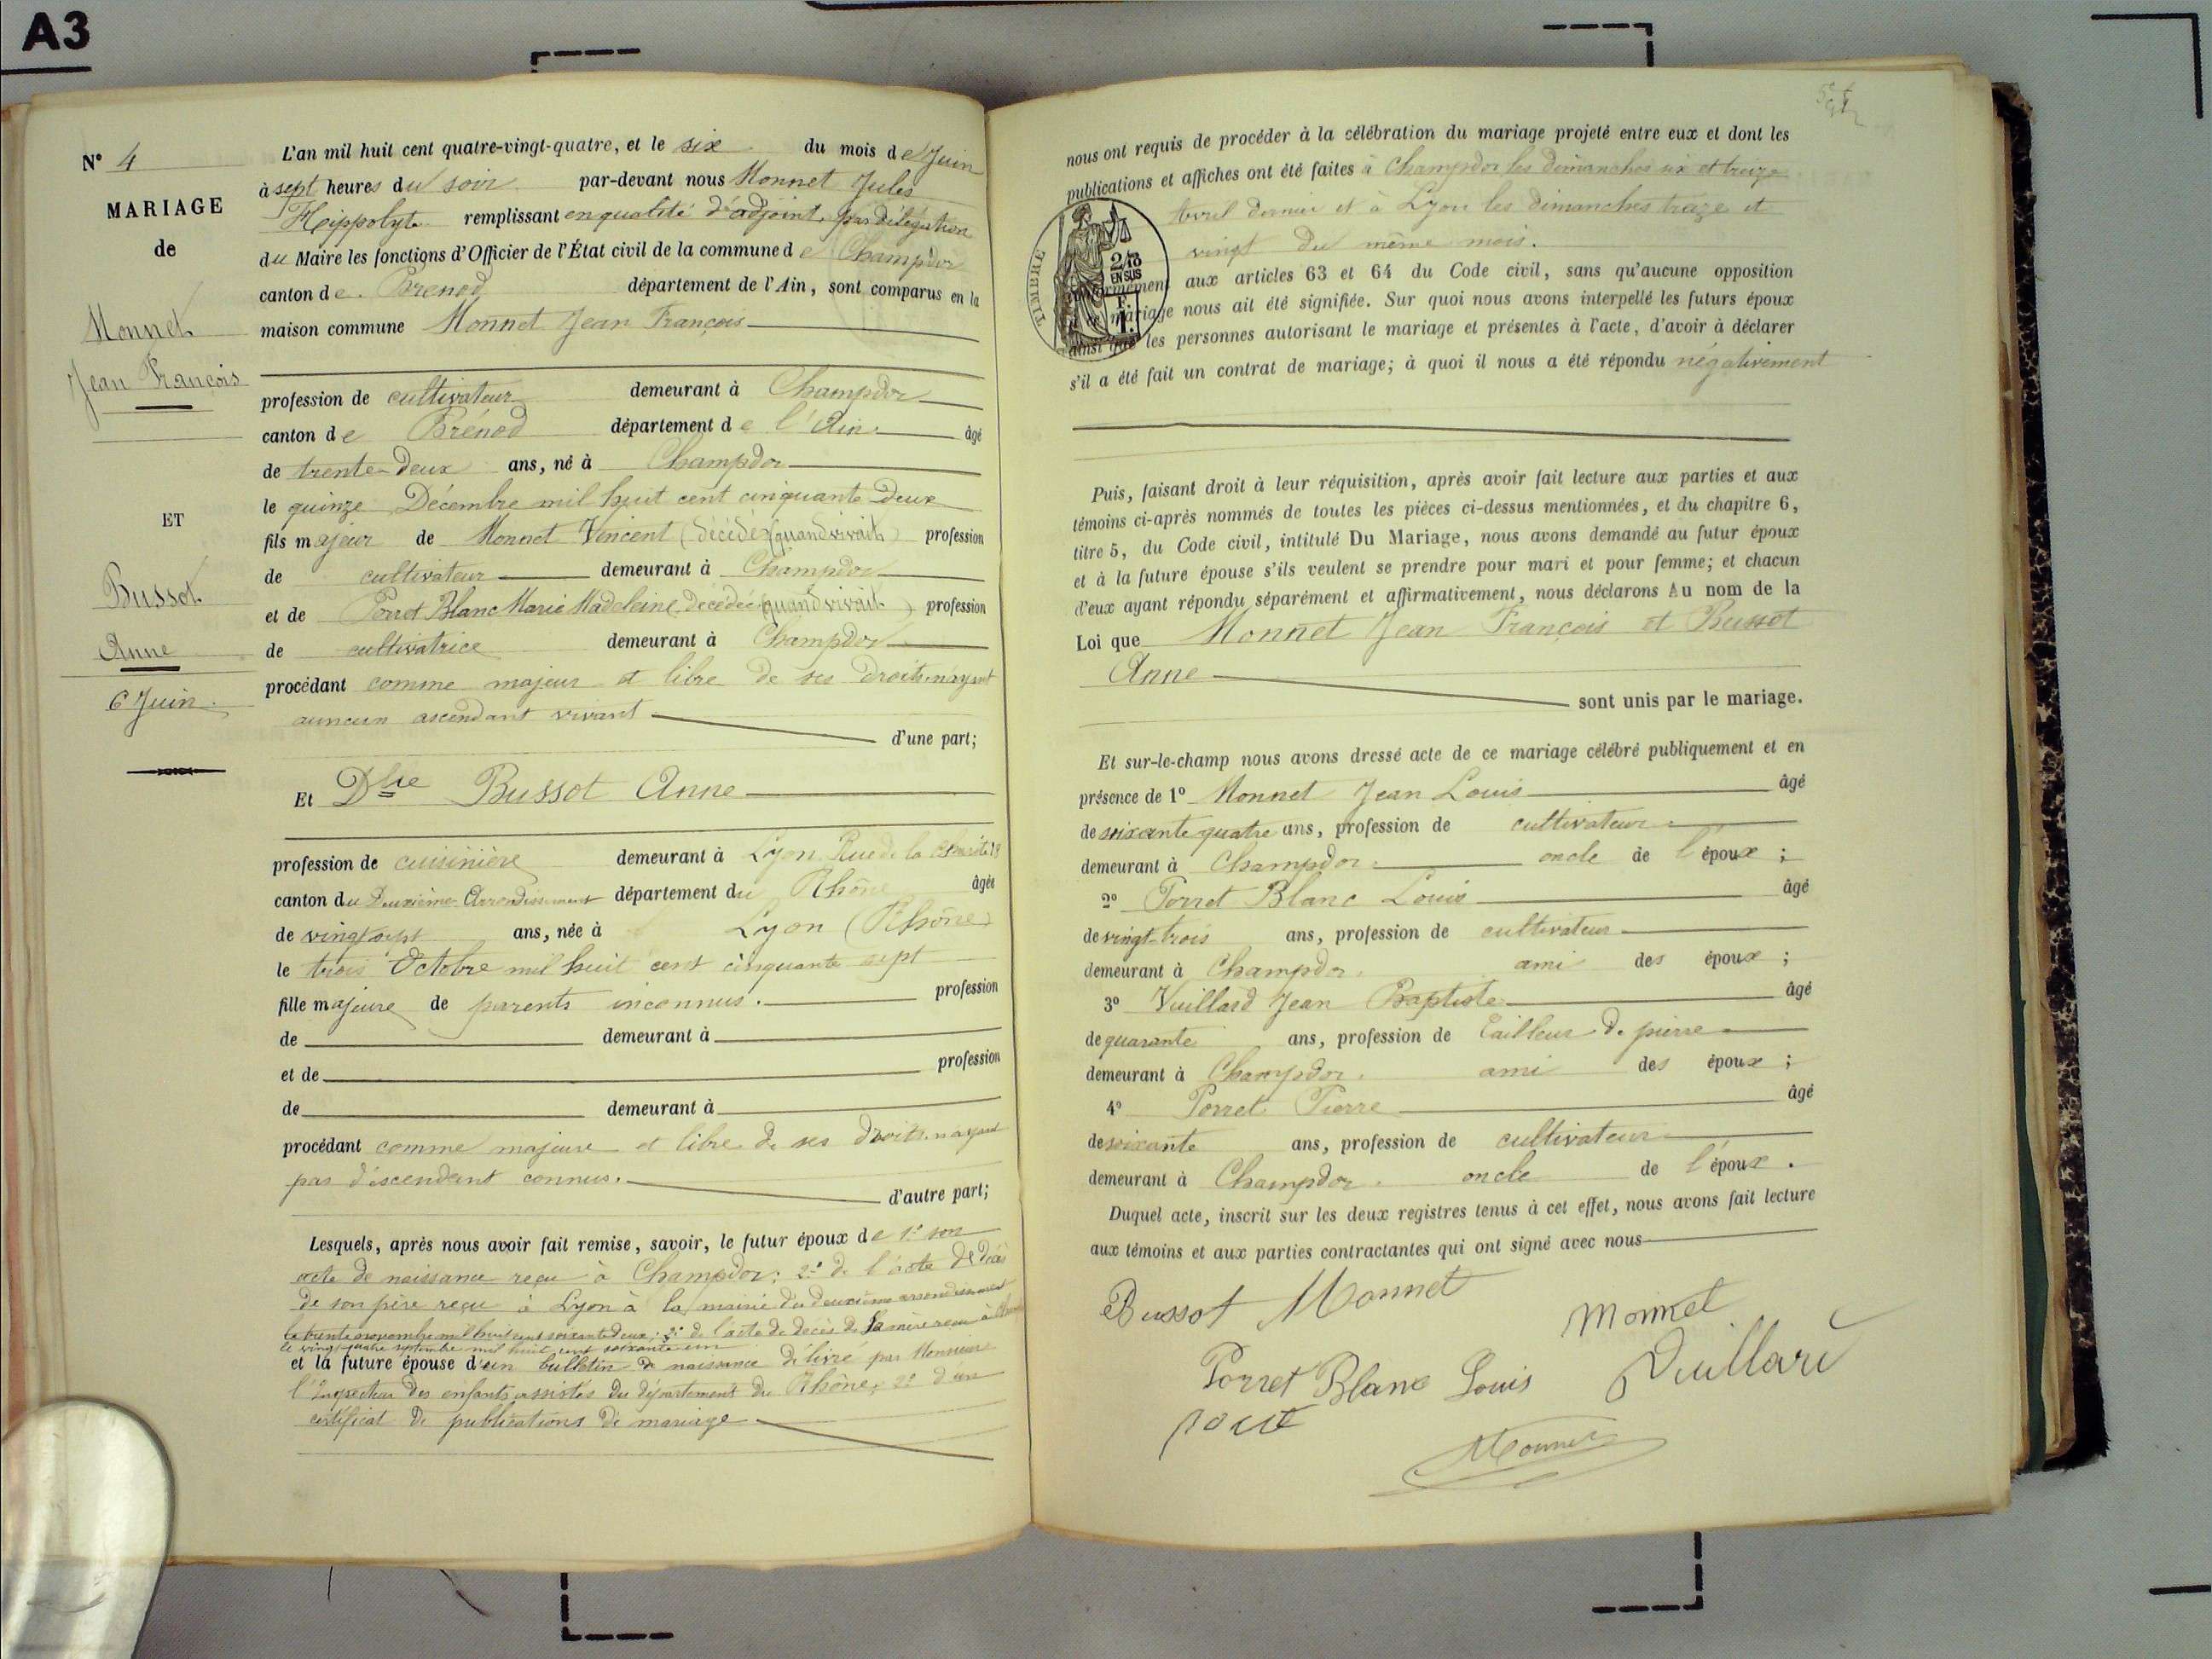 A3
N° 4
MARIAGE
de
Monnet
Jean François
ET
Bussot
Anne
6 Juin.
L'an mil huit cent quatre-vingt-quatre, et le six du mois de Juin
à sept heures du soir par-devant nous Monnet Jules
Hippolyte remplissant en qualité d'adjoint, par délégation
du Maire les fonctions d'Officier de l'État civil de la commune de Champdor
canton de Brenod département de l'Ain, sont comparus en la
maison commune Monnet Jean François
profession de cultivateur demeurant à Champdor
canton de Brénod département de l'Ain âgé
de trente-deux ans, né à Champdor
le quinze Décembre mil huit cent cinquante deux
fils majeur de Monnet Vincent (décédé) (quand vivait) profession
de cultivateur demeurant à Champdor
et de Porret Blanc Marie Madeleine, décédée (quand vivait) profession
de cultivatrice demeurant à Champdor
procédant comme majeur et libre de ses droits n'ayant
auncun ascendant vivant d'une part;
Et Dlle Bussot Anne
profession de cuisinière demeurant à Lyon Rue de la Charité 18
canton du Deuxième Arrondissement département du Rhône âgée
de vingt sept ans, née à Lyon (Rhône)
le trois Octobre mil huit cent cinquante sept
fille majeure de parents inconnus. profession
de demeurant à
et de profession
de demeurant à
procédant comme majeure et libre de ses droits n'ayant
pas d'escendant connus. d'autre part;
Lesquels, après nous avoir fait remise, savoir, le futur époux de 1° son
acte de naissance reçu à Champdor; 2° de l'acte de décès
de son père reçu à Lyon à la mairie du deuxième arrondissement
le trente novembre mil huit cent soixante deux; 3° de l'acte de décès de sa mère reçu à
le vingt quatre septembre mil huit cent soixante un
et la future épouse d'un bulletin de naissance délivré par Monsieur
l'Inspecteur des enfants assistés du département du Rhône; 2° d'un
certificat de publications de mariage
nous ont requis de procéder à la célébration du mariage projeté entre eux et dont les
publications et affiches ont été faites à Champdor les dimanches six et treize
Avril dernier et à Lyon les dimanches treize et
vingt du même mois.
TIMBRE
2/10
EN SUS
F.
1.
conformément aux articles 63 et 64 du Code civil, sans qu'aucune opposition
à ce mariage nous ait été signifiée. Sur quoi nous avons interpellé les futurs époux
ainsi que les personnes autorisant le mariage et présentes à l'acte, d'avoir à déclarer
s'il a été fait un contrat de mariage; à quoi il nous a été répondu négativement
Puis, faisant droit à leur réquisition, après avoir fait lecture aux parties et aux
témoins ci-après nommés de toutes les pièces ci-dessus mentionnées, et du chapitre 6,
titre 5, du Code civil, intitulé Du Mariage, nous avons demandé au futur époux
et à la future épouse s'ils veulent se prendre pour mari et pour femme; et chacun
d'eux ayant répondu séparément et affirmativement, nous déclarons Au nom de la
Loi que Monnet Jean François et Bussot
Anne
sont unis par le mariage.
Et sur-le-champ nous avons dressé acte de ce mariage célébré publiquement et en
présence de 1° Monnet Jean Louis âgé
de soixante quatre ans, profession de cultivateur
demeurant à Champdor oncle de l'époux ;
2° Porret Blanc Louis âgé
de vingt-trois ans, profession de cultivateur
demeurant à Champdor. ami des époux ;
3° Vuillard Jean Baptiste âgé
de quarante ans, profession de tailleur de pierre
demeurant à Champdor. ami des époux ;
4° Porret Pierre âgé
de soixante ans, profession de cultivateur
demeurant à Champdor. oncle de l'époux .
Duquel acte, inscrit sur les deux registres tenus à cet effet, nous avons fait lecture
aux témoins et aux parties contractantes qui ont signé avec nous
Bussot Monnet Monnet
Porret Blanc Louis Vuillard
Monnet